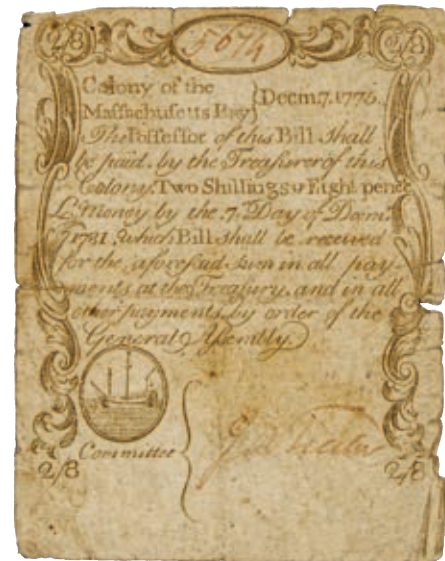 2/8 5674 2/8
Colony of the
Massachusetts Bay } Decm. 7. 1775.
The Possessor of this Bill shall
be paid by the Treasurer of this
Colony, Two Shillings & Eight pence
L. Money by the 7. Day of Decm.
1781, which Bill shall be received
for the aforesaid sum in all pay-
ments at the Treasury, and in all
other payments by order of the
General Assembly.
Committee {
2/8 2/8